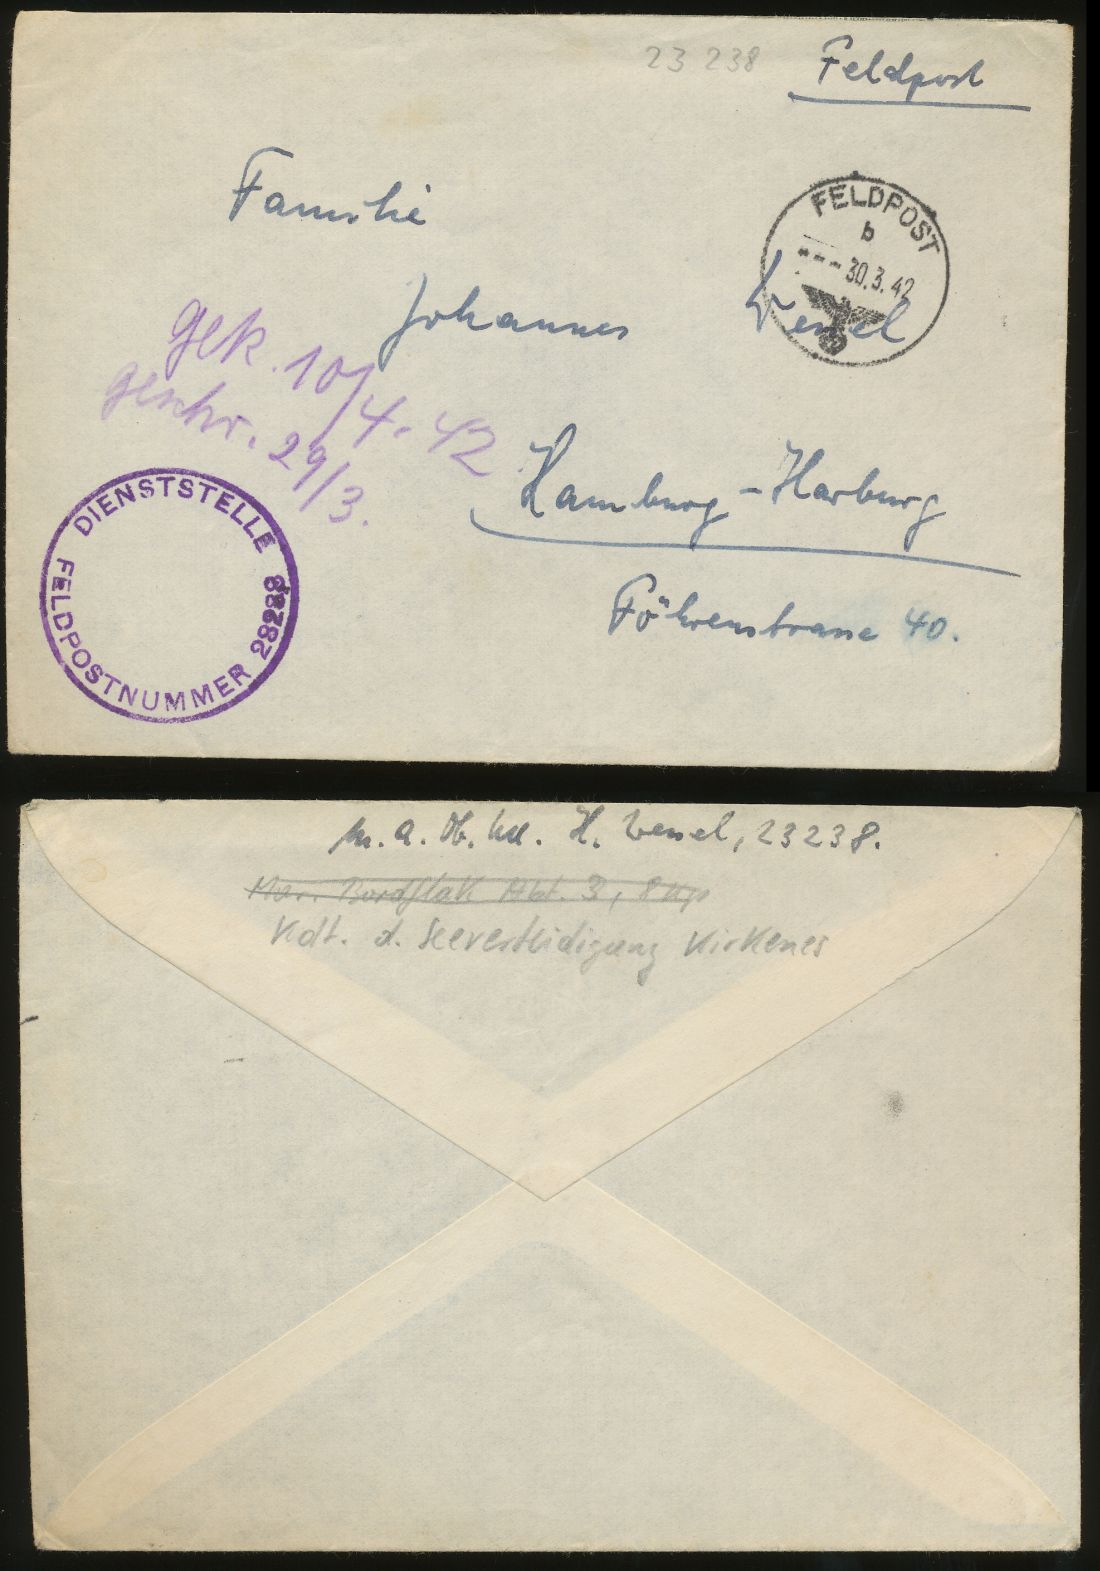 23 238
Feldpost
Familie
FELDPOST
b
30.3.42
Johannes Wessel
gek. 10/4. 42
geschr. 29/3.
Hamburg-Harburg
Föhrenstrasse 40.
DIENSTSTELLE
FELDPOSTNUMMER
M. a. Ob. H. Wessel, 23238.
Mar. Bordflak Abt. 3, 8 Kp
Kdt. d. Seeverteidigung Kirkenes